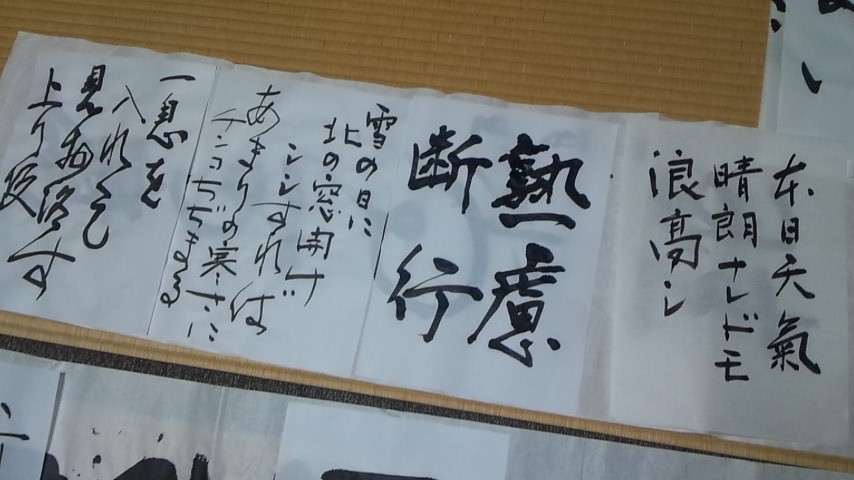 本日天氣
晴朗ナレドモ
浪高シ
熟慮
断行
雪の日に
北の窓開け
シシすれば
あまりの寒さに
チンコちぢまる
一息を
入れて
見拓落す
上り坂
い